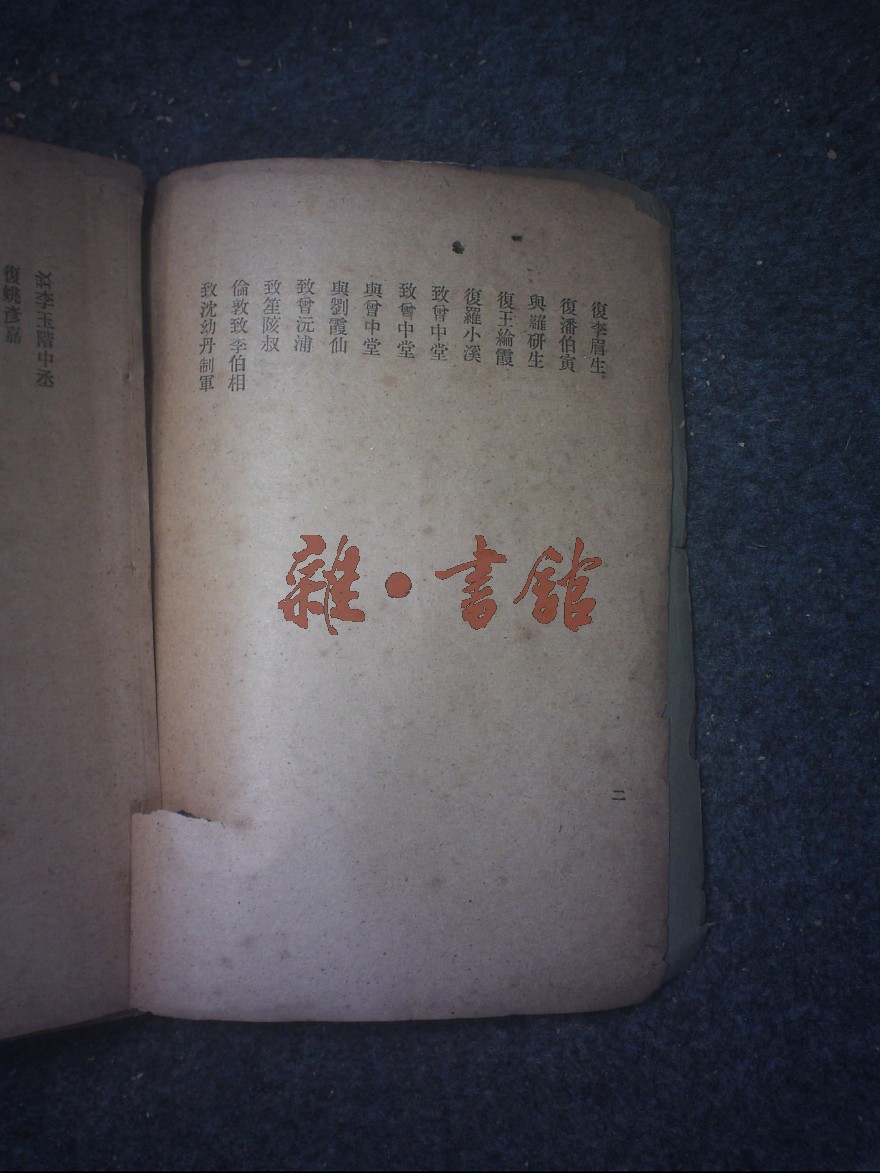 復李眉生
復潘伯寅
與羅研生
復王綸霞
復羅小溪
致曾中堂
致曾中堂
與曾中堂
與劉霞仙
致曾沅浦
致笙陔叔
倫敦致李伯相
致沈幼丹制軍
二
致李玉階中丞
復姚彥嘉
雜·書館